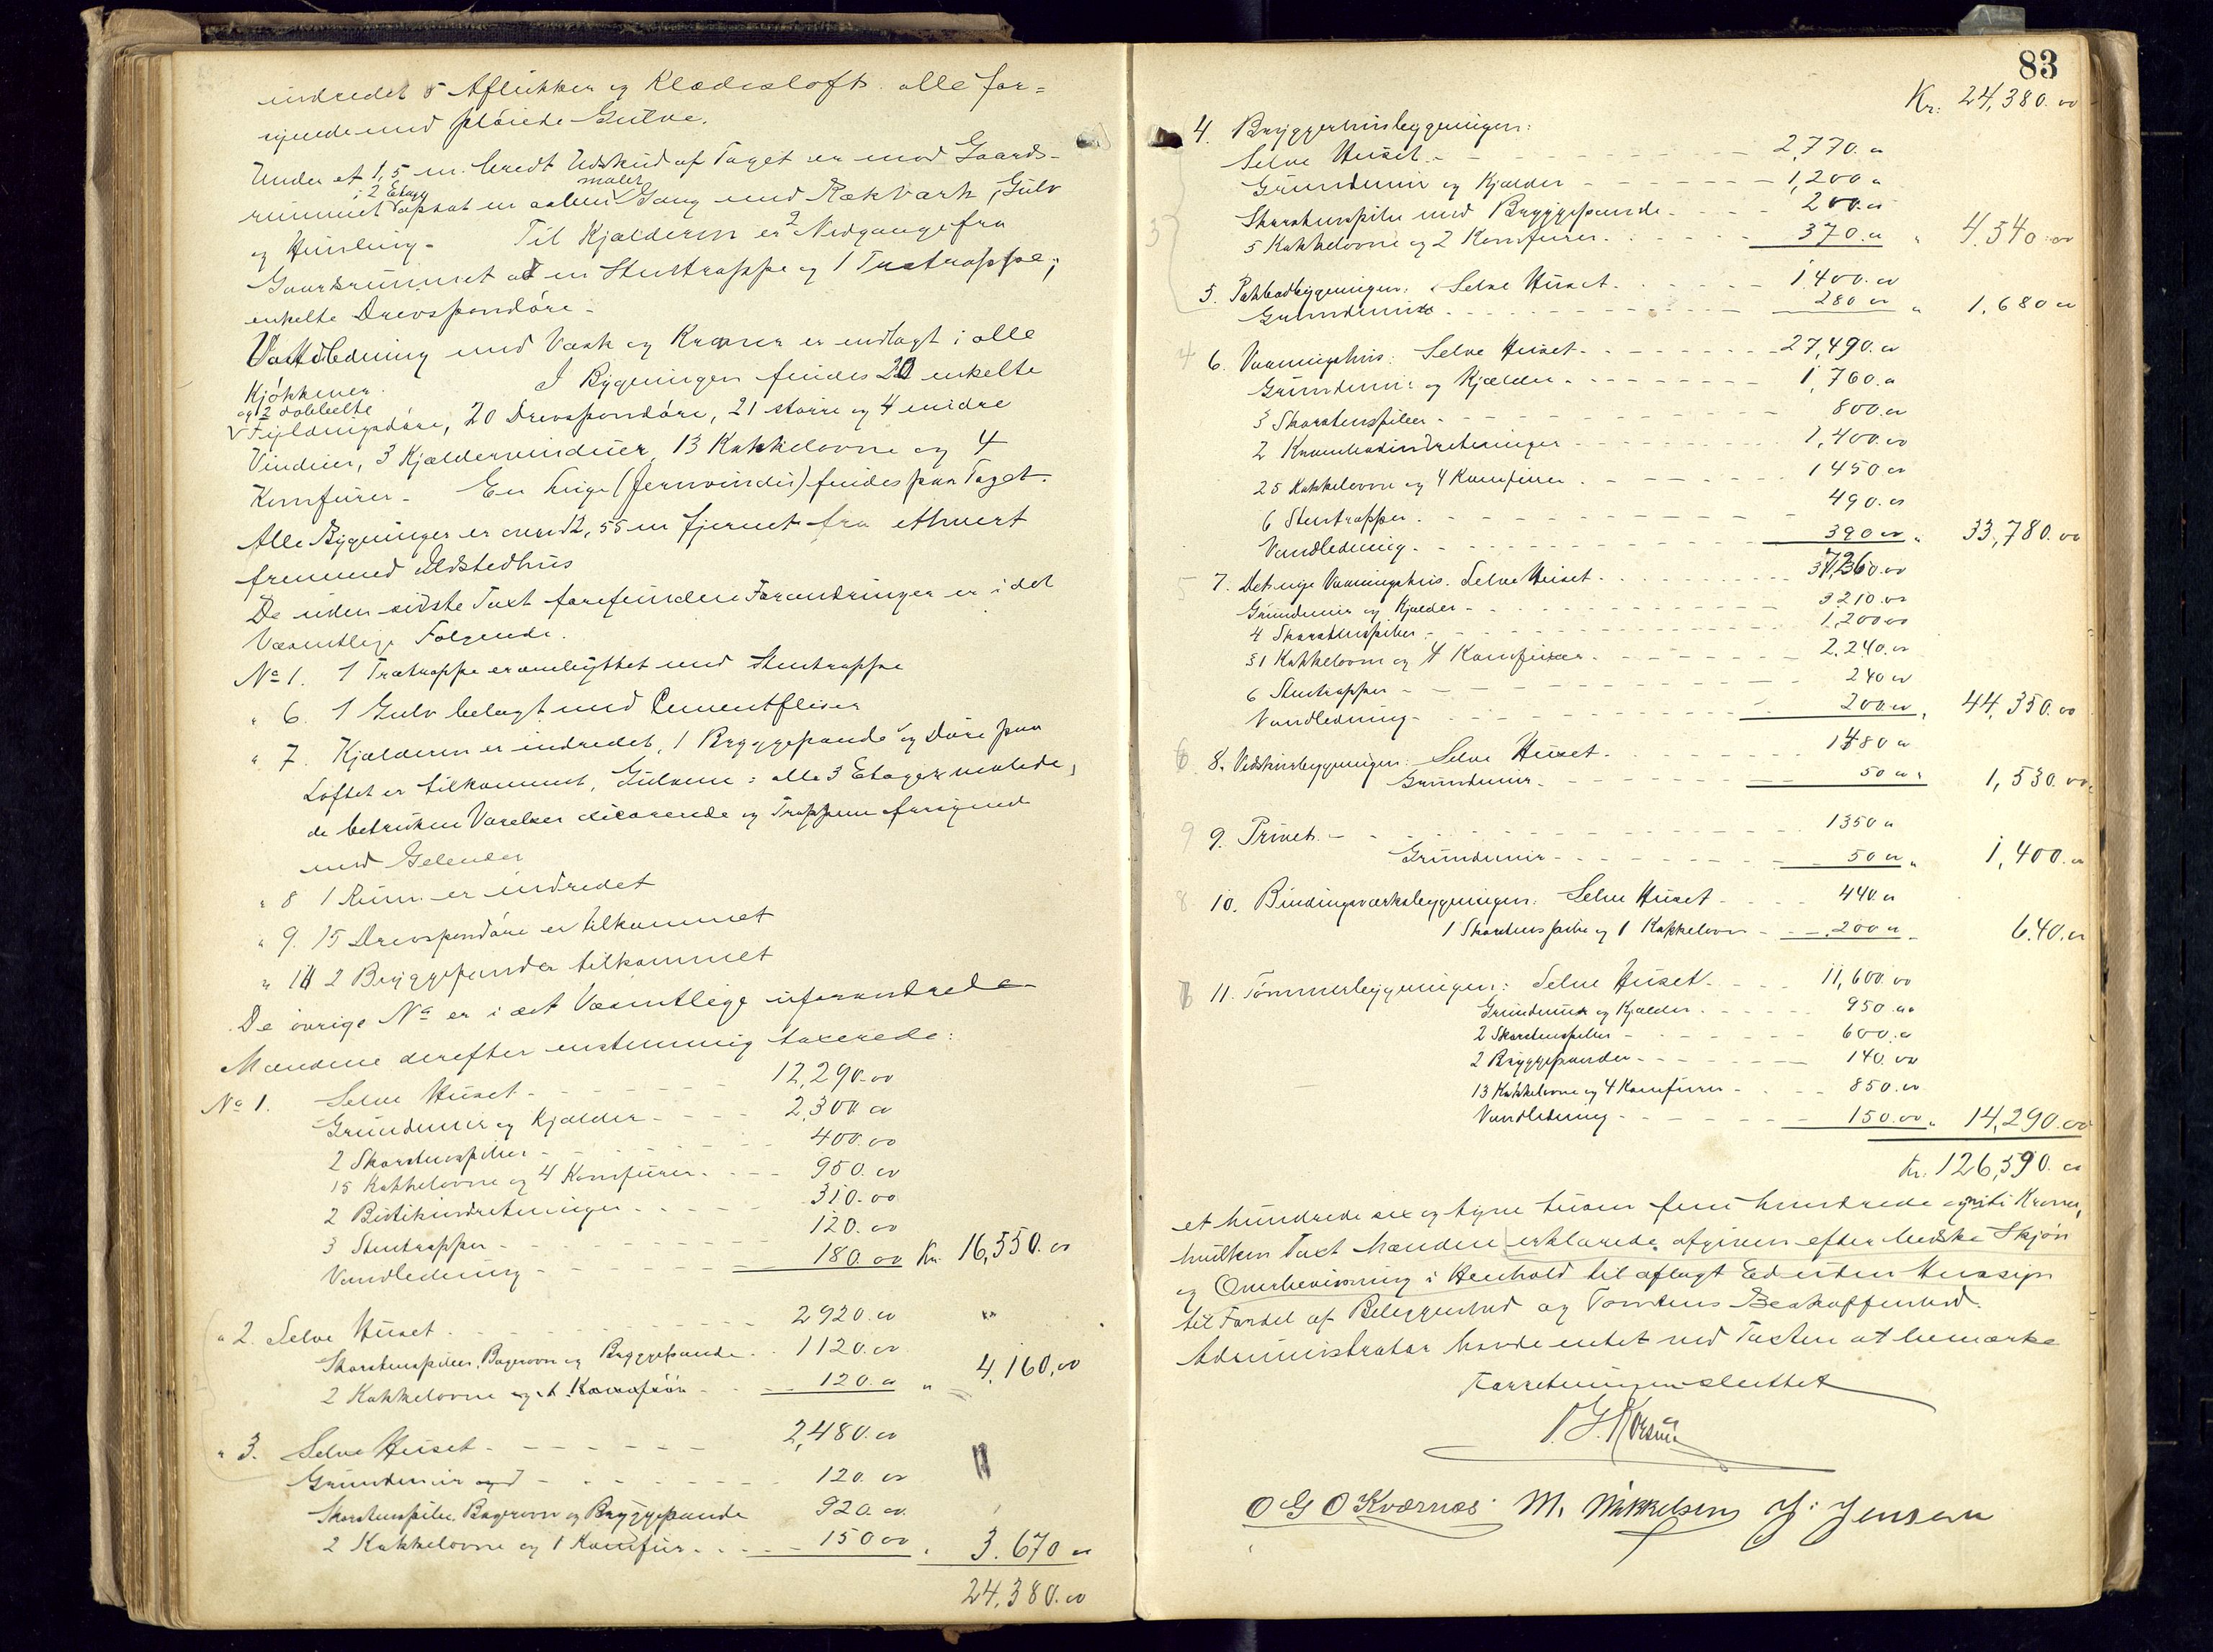 indredet 5 Aflukker og Klædesloft. alle for=
synede med pløiede Gulve.
Under et 1,5 m. bredt Udskud af Taget er mod Gaards-
rummet i 2 Etage opsat en aaben malet Gang med Rækværk, Gulv
og Himling - Til Kjælderen er 2 Nedgange fra
Gaardsrummet ad en Stentrappe og 1 Trætrappe;
enkelte Drevspondøre -
Vandledning med Vask og Kraner er indlagt i alle
Kjøkkener. I Bygningen findes 20 enkelte
og 2 dobbelte
Fyldingsdøre, 20 Drevspondøre, 21 større og 4 mindre
Vinduer, 3 Kjældervinduer, 13 Kakkelovne og 4
Komfurer - En Luge (Jernvindu) findes paa Taget.
Alle Bygninger er over 12,55 m fjernet fra ethvert
fremmed Ildstedhus
De siden sidste Taxt forefundne Forandringer er i det
Væsentlige Følgende.
No 1. 1 Trætrappe er ombyttet med Stentrappe
" 6. 1 Gulv belagt med Cementfliser
" 7. Kjælderen er indredet, 1 Bryggepande og Døre paa
Loftet er tilkommet, Gulvene i alle 3 Etager malede,
de betrukne Værelser dicorerede og Trappene forsynede
med Gelender
" 8 1 Rum er indredet
" 9. 15 Drevspondøre er tilkommet
" 11 2 Bryggepander tilkommet
De øvrige No er i det Væsentlige uforandrede
Mændene derefter enstemmig taxerede:
No 1. Selve Huset - 12,290.00
Grundmur og Kjælder - 2,300.00
2 Skorstenspiber - 400.00
15 Kakkelovne og 4 Komfurer - 950.00
2 Butikindretninger - 310.00
3 Stentrapper - 120.00
Vandledning - 180.00 Kr. 16,550.00
" 2. Selve Huset - 2920.00
Skorstenspiber, Bagerovn og Bryggepande - 1120.00
2 Kakkelovne og 1 Komfør - 120.00 " 4,160.00
" 3. Selve Huset - 2,480.00
Grundmur - 120.00
Skorstenspibe, Bagerovn og Bryggepande 920.00
2 Kakkelovne og 1 Komfur - 150.00 " 3.670.00
24,380.00
83
Kr. 24,380.00
4. Bryggerhusbygningen:
Selve Huset - 2,770.00
Grundmur og Kjælder - 1,200.00
Skorstenspibe med Bryggepande - 200.00
5 Kakkelovne og 2 Komfurer - 370.00 " 4,540.00
5. Pakbodbygningen: Selve Huset - 1400.00
Grundmur - 280.00 " 1,680.00
6. Vaaningshus: Selve Huset - 27,490.00
Grundmur og Kjælder - 1,760.00
3 Skorstenspiber - 800.00
2 Krambodindretninger - 1,400.00
25 Kakkelovne og 4 Komfurer - 1450.00
6 Stentrapper - 490.00
Vandledning - 390.00 " 33,780.00
7. Det nye Vaaningshus. Selve Huset - 37,260.00
Grundmur og Kjælder - 3210.00
4 Skorstenspiber - 1,200.00
31 Kakkelovn og 4 Komfurer - 2,240.00
6 Stentrapper - 240.00
Vandledning - 200.00 " 44,350.00
8. Vedskursbygningen: Selve Huset - 1480.00
Grundmur - 50.00 " 1,530.00
9. Privet - 1350.00
Grundmur - 50.00 " 1,400.00
10. Bindingsværksbygningen: Selve Huset - 440.00
1 Skorstenspibe og 1 Kakkelovn - 200.00 640.00
11. Tømmerbygningen: Selve Huset - 11,600.00
Grundmur og Kjælder - 950.00
2 Skorstenspiber - 600.00
2 Bryggepander - 140.00
13 Kakkelovne og 4 Komfurer - 850.00
Vandledning - 150.00 " 14,290.00
Kr. 126,590.00
et hundrede sex og tyve tusen fem hundrede og niti Kroner,
hvilken Taxt Mændene erklærede afgiven efter bedste Skjøn
og Overbevisning i Henhold til aflagt Ed uden Hensyn
til Fordel af Beliggenhed og Tomtens Beskaffenhed.
Administrator havde intet ved Taxten at bemærke
Forretningen sluttet
O G O Kværnæs M. Mikkelsen J. Jensen